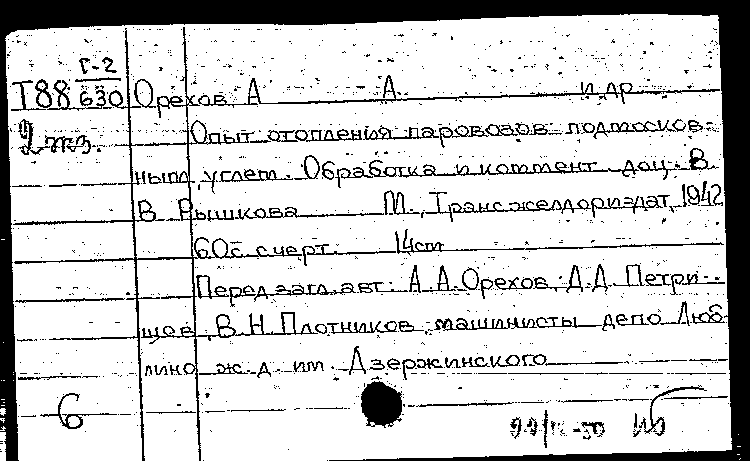 Г-2
Т88 630 Орехов, А А. и др
2 экз. Опыт отопления паровозов подмосков-
ным углем. Обработка и коммент. доц. В.
В. Рышкова М., Трансжелдориздат, 1942
60с. с черт. 14см
Перед загл. авт: А.А.Орехов, Д.Д. Петри-
щев, В.Н.Плотников, машинисты депо Люб-
лино ж.д. им. Дзержинского
6